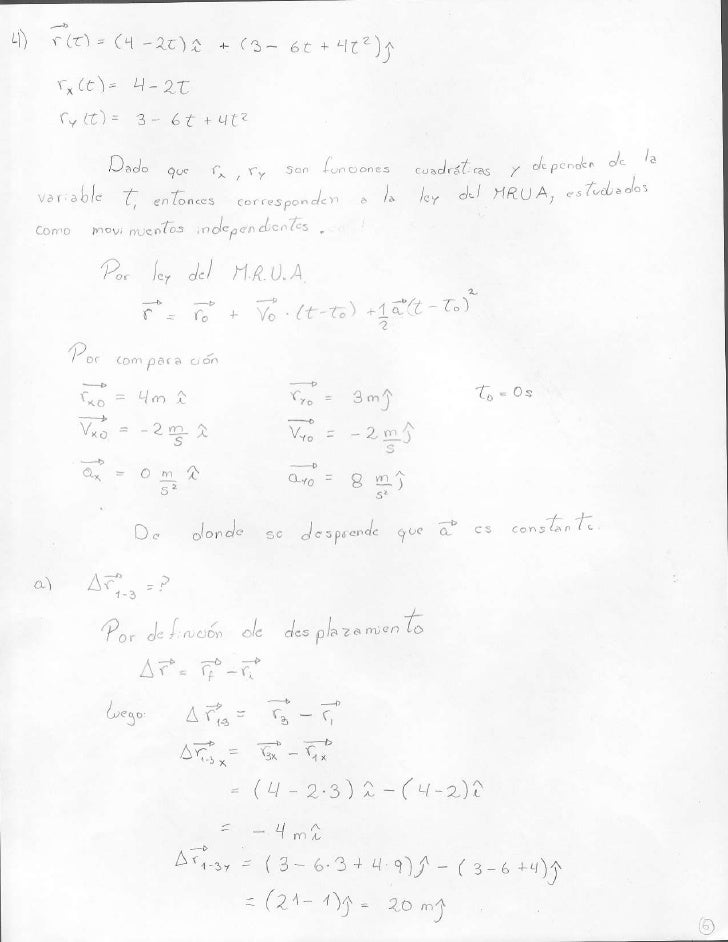 4) r⃗(t) = (4 - 2t) î + (3 - 6t + 4t²) ĵ
rₓ(t) = 4 - 2t
r_y(t) = 3 - 6t + 4t²
Dado que rₓ, r_y son funciones cuadráticas y dependen de la
variable t, entonces corresponden a la ley del MRUA, estudiados
como movimientos independientes.
Por ley del M.R.U.A.
r⃗ = r⃗₀ + V⃗₀ · (t - t₀) + 1/2 a⃗ (t - t₀)²
Por comparación
r⃗ₓ₀ = 4m î r⃗_y₀ = 3 m ĵ t₀ = 0s
V⃗ₓ₀ = -2 m/s î V⃗_y₀ = -2 m/s ĵ
a⃗ₓ = 0 m/s² î a⃗_y₀ = 8 m/s² ĵ
De donde se desprende que a⃗ es constante.
a) Δr⃗₁₋₃ = ?
Por definición de desplazamiento
Δr⃗ = r⃗f - r⃗i
Luego: Δr⃗₁₃ = r⃗₃ - r⃗₁
Δr⃗₁₋₃ₓ = r⃗₃ₓ - r⃗₁ₓ
= (4 - 2·3) î - (4-2) î
= - 4 m î
Δr⃗₁₋₃y = (3 - 6·3 + 4·9) ĵ - (3 - 6 + 4) ĵ
= (21 - 1) ĵ = 20 m ĵ
6